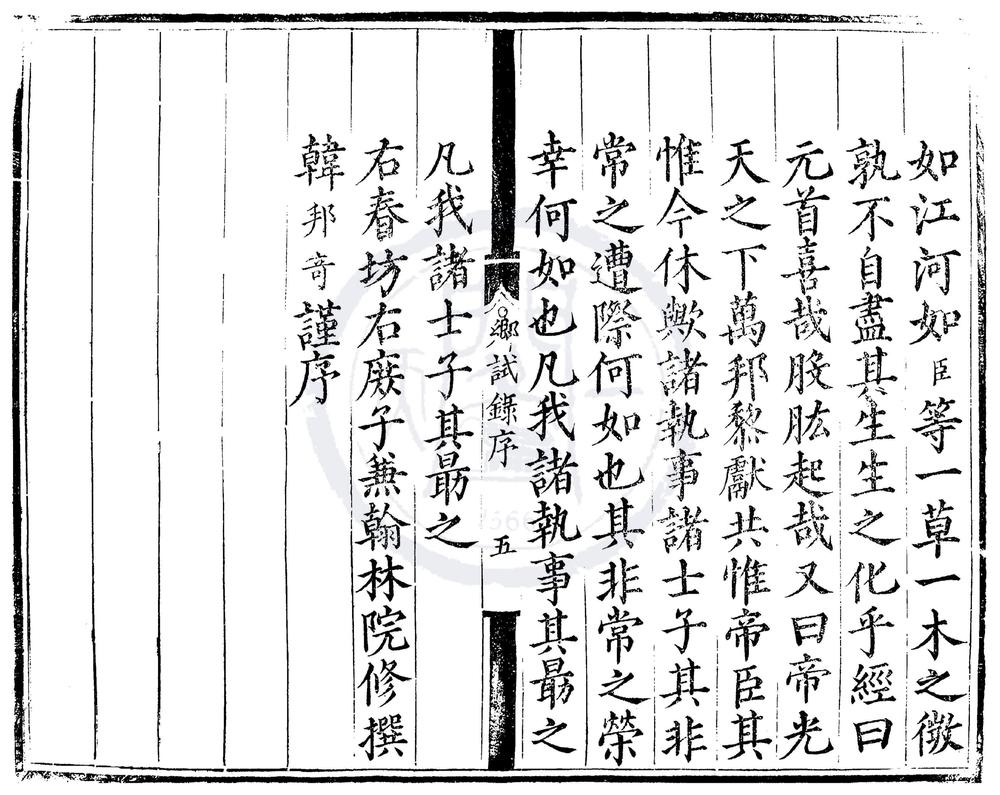 如江河如臣等一草一木之微
孰不自盡其生生之化乎經曰
元首喜哉股肱起哉又曰帝光
天之下萬邦黎獻共惟帝臣其
惟今休歟諸執事諸士子其非
常之遭際何如也其非常之榮
幸何如也凡我諸執事其勗之
鄉試錄序
五
凡我諸士子其勗之
右春坊右庶子兼翰林院修撰
韓邦奇謹序